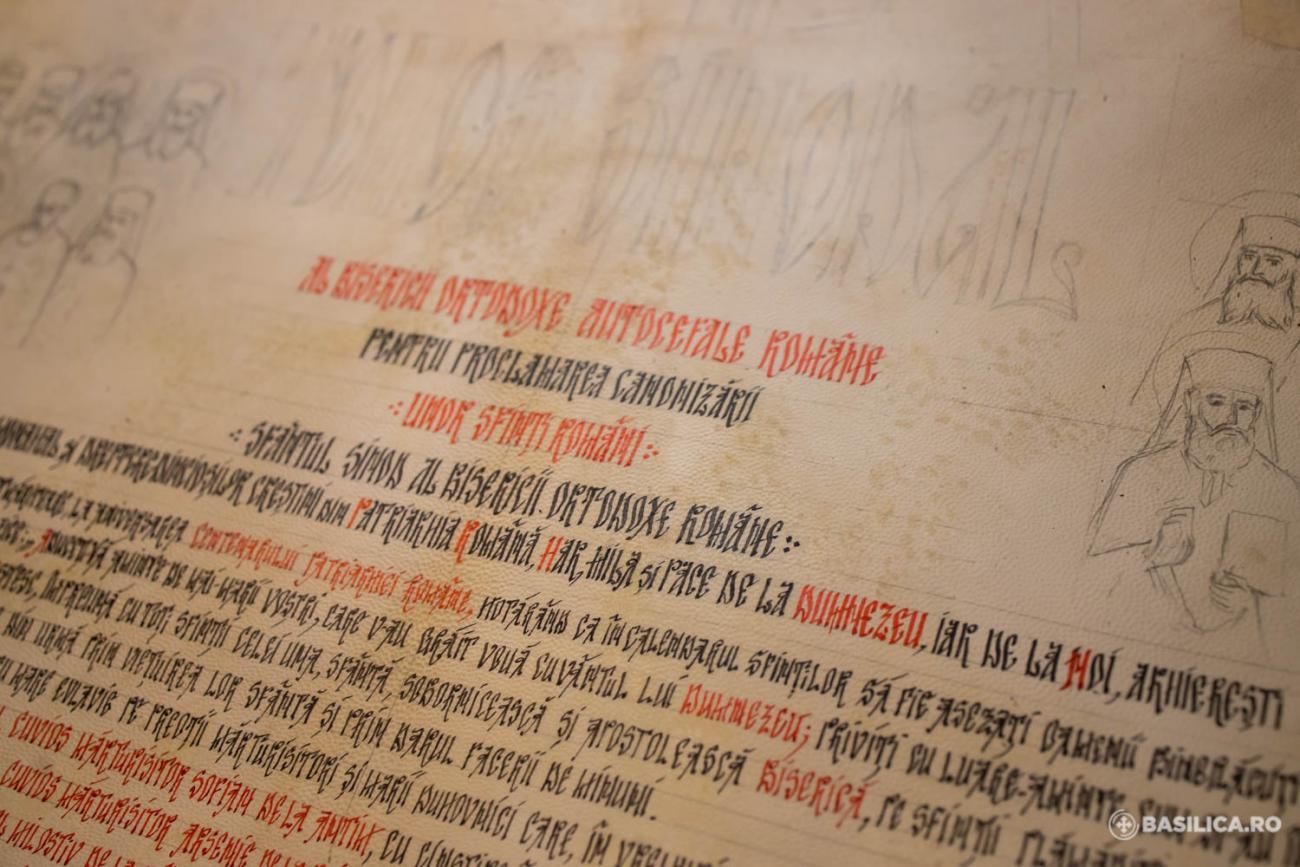 AL BISERICII ORTODOXE AUTOCEFALE ROMÂNE
PENTRU PROCLAMAREA CANONIZĂRII
UNOR SFINȚI ROMÂNI
SFÂNTUL SINOD AL BISERICII ORTODOXE ROMÂNE
ȘI DREPTCREDINCIOȘILOR CREȘTINI DIN PATRIARHIA ROMÂNĂ, HAR, MILĂ ȘI PACE DE LA DUMNEZEU, IAR DE LA NOI, ARHIEREȘTI
LA ANIVERSAREA CENTENARULUI PATRIARHIEI ROMÂNE, HOTĂRÂM CA ÎN CALENDARUL SFINȚILOR SĂ FIE AȘEZAȚI OAMENII BINEPLĂCUȚI
ADUCEȚI-VĂ AMINTE DE MAI-MARII VOȘTRI, CARE V-AU GRĂIT VOUĂ CUVÂNTUL LUI DUMNEZEU; PRIVIȚI CU LUARE-AMINTE CUM
ÎMPREUNĂ CU TOȚI SFINȚII CELEI UNA, SFÂNTĂ, SOBORNICEASCĂ ȘI APOSTOLEASCĂ BISERICĂ, PE SFINȚII
DIN URMĂ PRIN VIEȚUIREA LOR SFÂNTĂ ȘI PRIN DARUL FACERII DE MINUNI.
MARE EVLAVIE PE PREOȚII MĂRTURISITORI ȘI MARII DUHOVNICI CARE, ÎN
CUVIOS MĂRTURISITOR SOFIAN DE LA ANTIM, CU
CUVIOS MĂRTURISITOR ARSENIE DE LA
MILOSTIV DE LA
BASILICA.RO